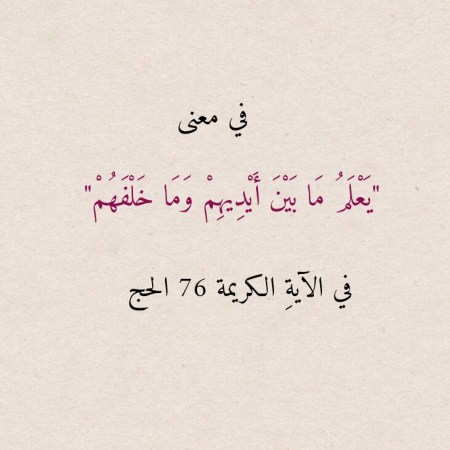 في معنى
"يَعْلَمُ مَا بَيْنَ أَيْدِيهِمْ وَمَا خَلْفَهُمْ"
في الآيةِ الكريمة 76 الحج